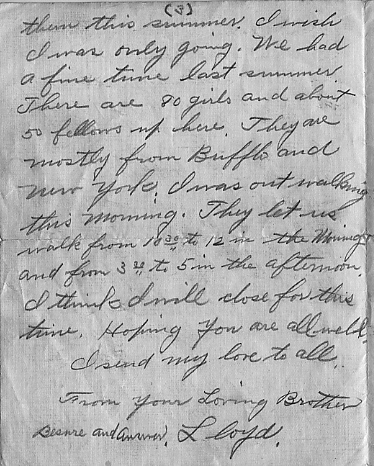 (3)
them this summer. I wish
I was only going. We had
a fine time last summer.
There are 70 girls and about
50 fellows up here. They are
mostly from Bufflo and
New York. I was out walking
this morning. They let us
walk from 10 30 to 12 in the Morning
and from 3 30 to 5 in the afternoon.
I think I will close for this
time. Hoping you are all well.
I send my love to all.
From Your Loving Brother
Besure and answer. Lloyd.